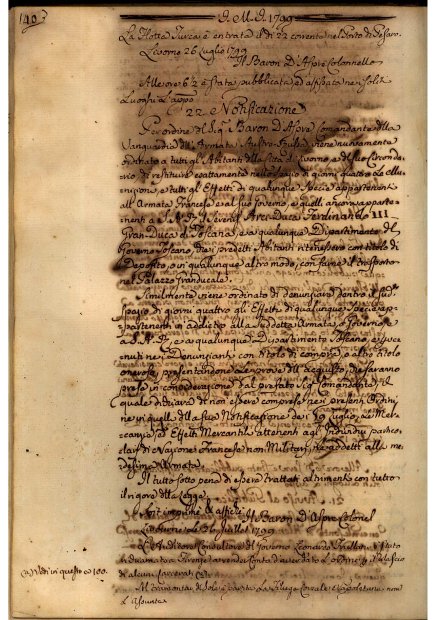 140
G. M. G. 1799
La Flotta Turca è entrata il dì 22 corrente nel Porto di Pesaro.
Livorno 26 Luglio 1799
Il Baron D'Aspre Colonnello
Alle ore 6½ è stata pubblicata ed affissa nei soliti
Luoghi l'appo
22. e Notificazione
Per ordine del Sig. Baron D'Aspre Comandante della
Vanguardia dell'Armata Austro-Russa viene nuovamente
ordinato a tutti gli Abitanti della Città di Livorno, e di suo Circonda-
rio di restituire esattamente nello spazio di giorni quattro le Mu-
nizioni, e tutti gli Effetti di qualunque Specie appartenenti
all'Armata Francese e al suo Governo, e quelli ancora apparte-
nenti a S. A. R. il Seren. Arci-Duca Ferdinando III
Gran-Duca di Toscana, e a qualunque Dipartimento del
Governo Toscano, che i predetti Abitanti ritenessero con titolo di
Deposito, o in qualunque altro modo, con farne il trasporto
nel Palazzo Granducale.
Similmente viene ordinato di denunziare dentro il sud.
spazio di giorni quattro gli Effetti di qualunque Specie ap-
partenenti in addietro alla suddetta Armata, o Governo
a S. A. R., e a qualunque Dipartimento Toscano, e
nei Denunzianti con titolo di compra, o altro titolo
oneroso, presentandone le prove dell'acquisto, che saranno
prese in considerazione dal prefato Sig. Comandante, il
quale dichiara di non essere comprese nei presenti Ordini,
ne in quelli della sua Notificazione de' 19 Luglio, le Mer-
canzie ed Effetti Mercantili attenenti agl'Individui
di Nazione Francese non Militari, ne addetti alla me-
desima Armata.
Il tutto sotto pena di essere trattati altrimenti con tutto
il rigore della Legge.
Soit imprimé et affiché
Il Baron D'Aspre Colonel
Livourne le 26 Juillet 1799
L'Auditore Consultore di Governo Leonardo Frullani è stato
chiamato a Firenze
(a) Vedi in questo a 100.
di alcuni carcerati